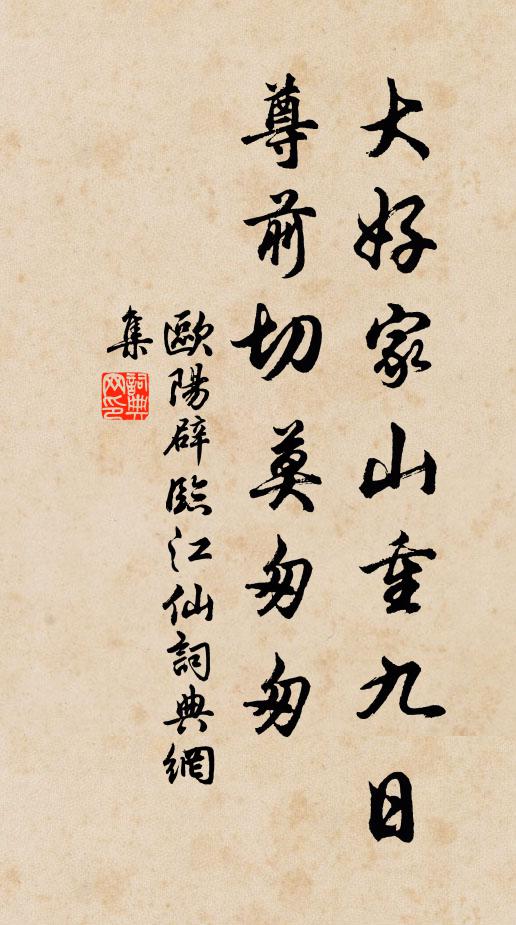 大好家山重九日
尊前切莫匆匆
歐陽辟臨江仙詞典網
集
詞典
网印